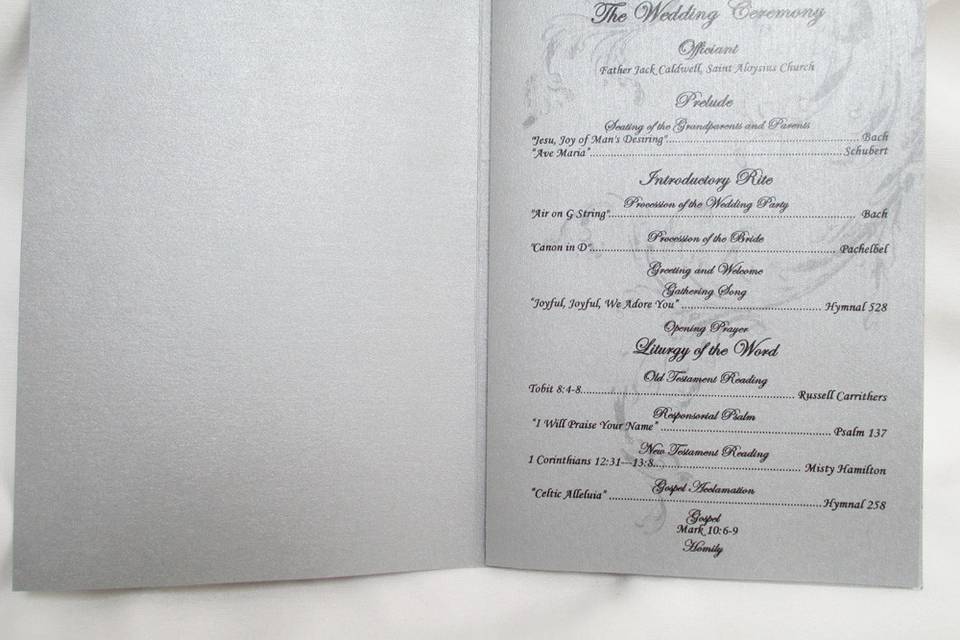 The Wedding Ceremony
Officiant
Father Jack Caldwell, Saint Aloysius Church
Prelude
Seating of the Grandparents and Parents
"Jesu, Joy of Man's Desiring"........Bach
"Ave Maria"........Schubert
Introductory Rite
Procession of the Wedding Party
"Air on G String"........Bach
Procession of the Bride
"Canon in D"........Pachelbel
Greeting and Welcome
Gathering Song
"Joyful, Joyful, We Adore You"........Hymnal 528
Opening Prayer
Liturgy of the Word
Old Testament Reading
Tobit 8:4-8........Russell Carrithers
Responsorial Psalm
"I Will Praise Your Name"........Psalm 137
New Testament Reading
1 Corinthians 12:31—13:8........Misty Hamilton
Gospel Acclamation
"Celtic Alleluia"........Hymnal 258
Gospel
Mark 10:6-9
Homily